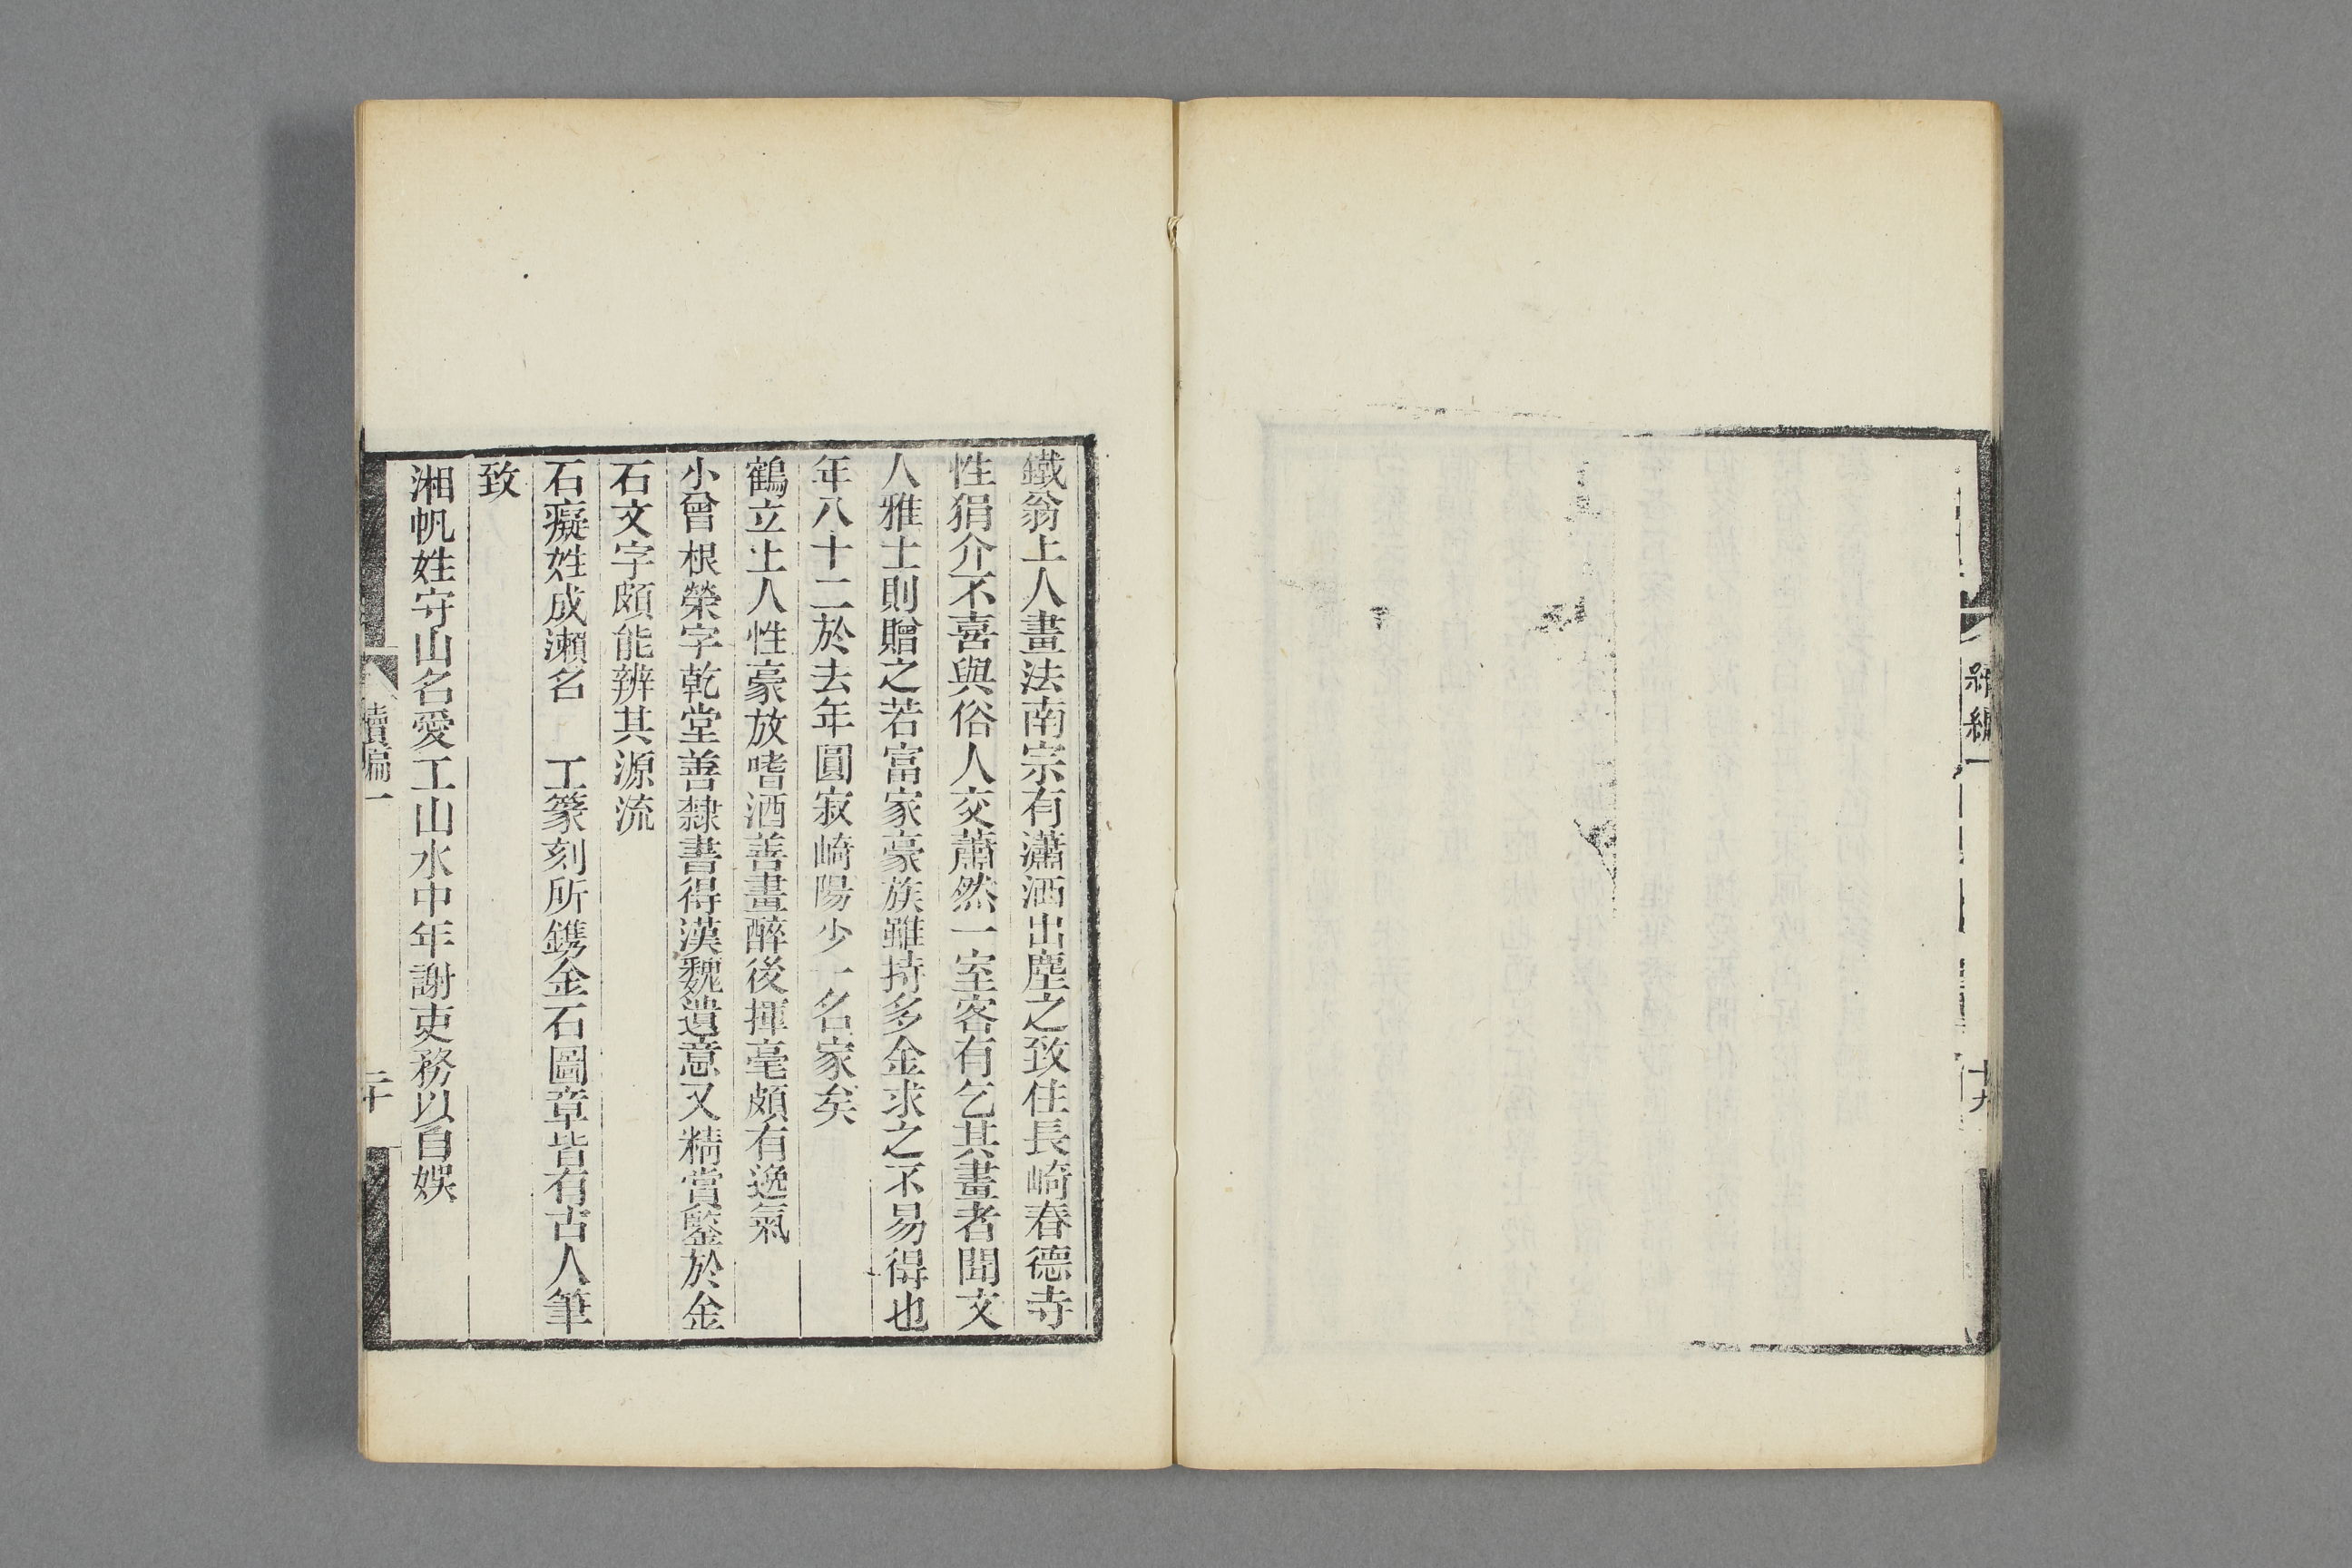 續編一
十九
鐵翁上人畫法南宗有瀟洒出塵之致住長崎春德寺
性狷介不喜與俗人交蕭然一室客有乞其畫者聞文
人雅士則贈之若富家豪族雖持多金求之不易得也
年八十二於去年圓寂崎陽少一名家矣
鶴立土人性豪放嗜酒善畫醉後揮毫頗有逸氣
小曾根榮字乾堂善隸書得漢魏遺意又精賞鑒於金
石文字頗能辨其源流
石癡姓成瀨名　工篆刻所鐫金石圖章皆有古人筆
致
湘帆姓守山名愛工山水中年謝吏務以自娛
續編一
二十